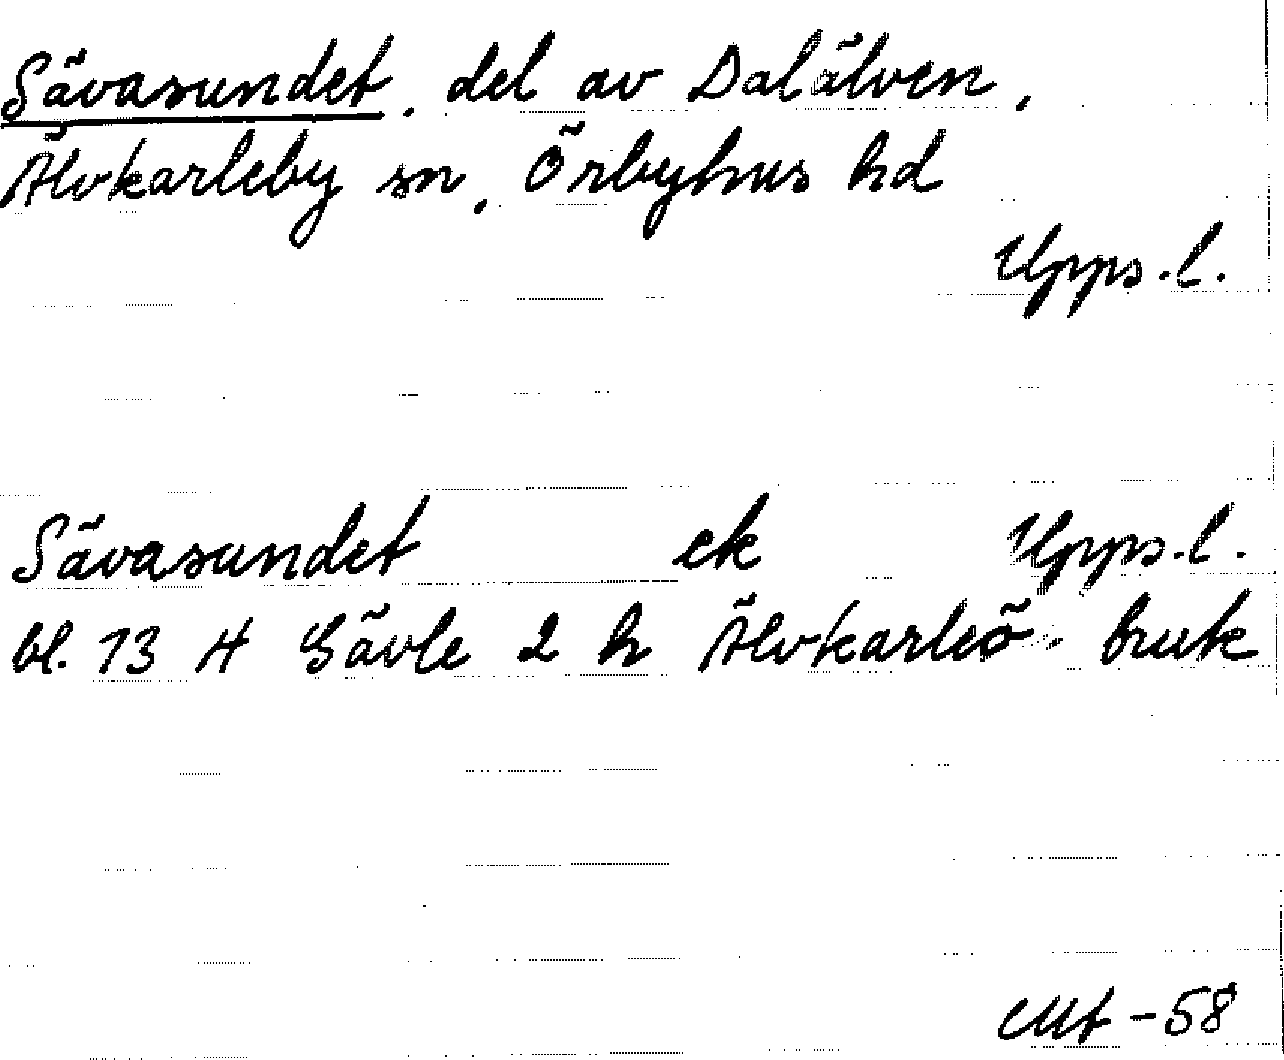 Sävasundet, del av Dalälven,
Älvkarleby sn, Örbyhus hd
Upps.l.
Sävasundet ek Upps.l.
bl. 13 H Gävle 2 h Älvkarleö-bruk
-58